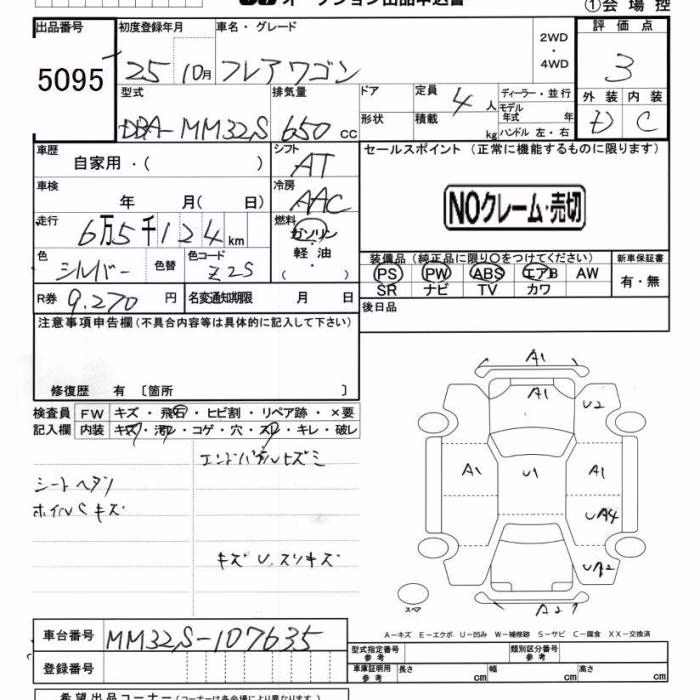 オークション出品申込書
①会場控
出品番号 5095
初度登録年月 25 10月
車名・グレード フレアワゴン
2WD・4WD
評価点 3
外装 D 内装 C
型式 DBA-MM32S
排気量 650 cc
ドア
形状
定員 4 人
積載 kg
ディーラー・並行
モデル年式 年
ハンドル 左・右
車歴 自家用・( )
シフト AT
セールスポイント (正常に機能するものに限ります)
NOクレーム・売切
車検 年 月( 日)
冷房 AAC
走行 6万5千124km
燃料 ガソリン・軽油・( )
色 シルバー 色替 色コード Z2S
装備品 (純正品に限り○をつけてください)
新車保証書
PS PW ABS エアB AW
SR ナビ TV カワ
有・無
R券 9,270 円 名変通知期限 月 日
後日品
注意事項申告欄 (不具合内容等は具体的に記入して下さい)
修復歴 有 〔箇所 〕
検査員 FW キズ・飛石・ヒビ割・リペア跡・×要
記入欄 内装 キズ・汚レ・コゲ・穴・スレ・キレ・破レ
エンドパネルヒズミ
シートヘタリ
ホイルCキズ
キズU.スリキズ
A1
A1
U2
A1 U1 A1
UA4
UA2
A2
スペア
A-キズ E-エクボ U-凹み W-補修跡 S-サビ C-腐食 XX-交換済
車台番号 MM32S-107635
登録番号
型式指定番号 参考
類別区分番号 参考
車庫証明用 参考 長さ cm 幅 cm 高さ cm
希望出品コーナー (コーナーは各会場により異なります。)